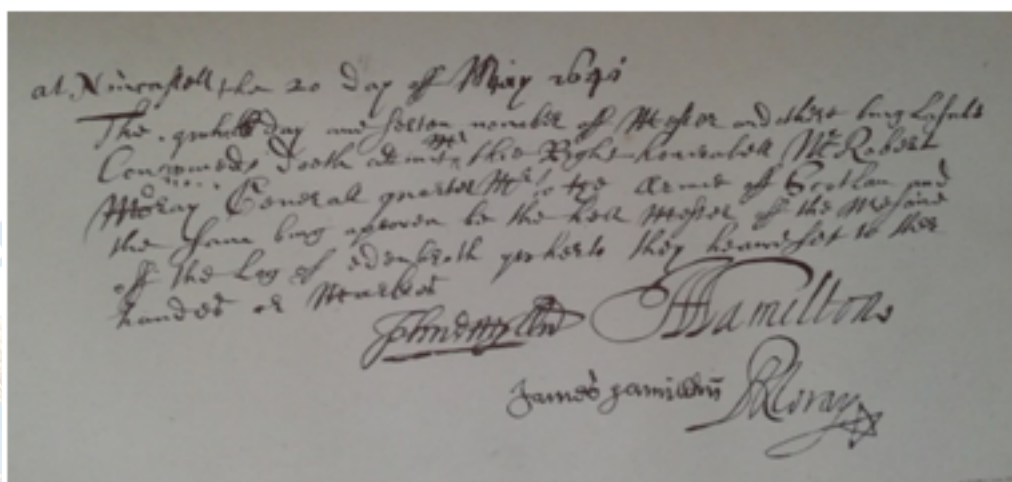 at Newcastell the 20 day off May 1641
The quhilk day ane serten nomber off Mester and others being lafule
Convened doeth admit Mr the Right honerabell Mr Robert
Moray General quarter Mr to the Armie of Scotlan and
the same being aproven be the hell Mester off the Mesone
off the Log of edenbroth quherto they heaue set to ther
handes or Markes
A Hamilton
James Hamiltton RMoray